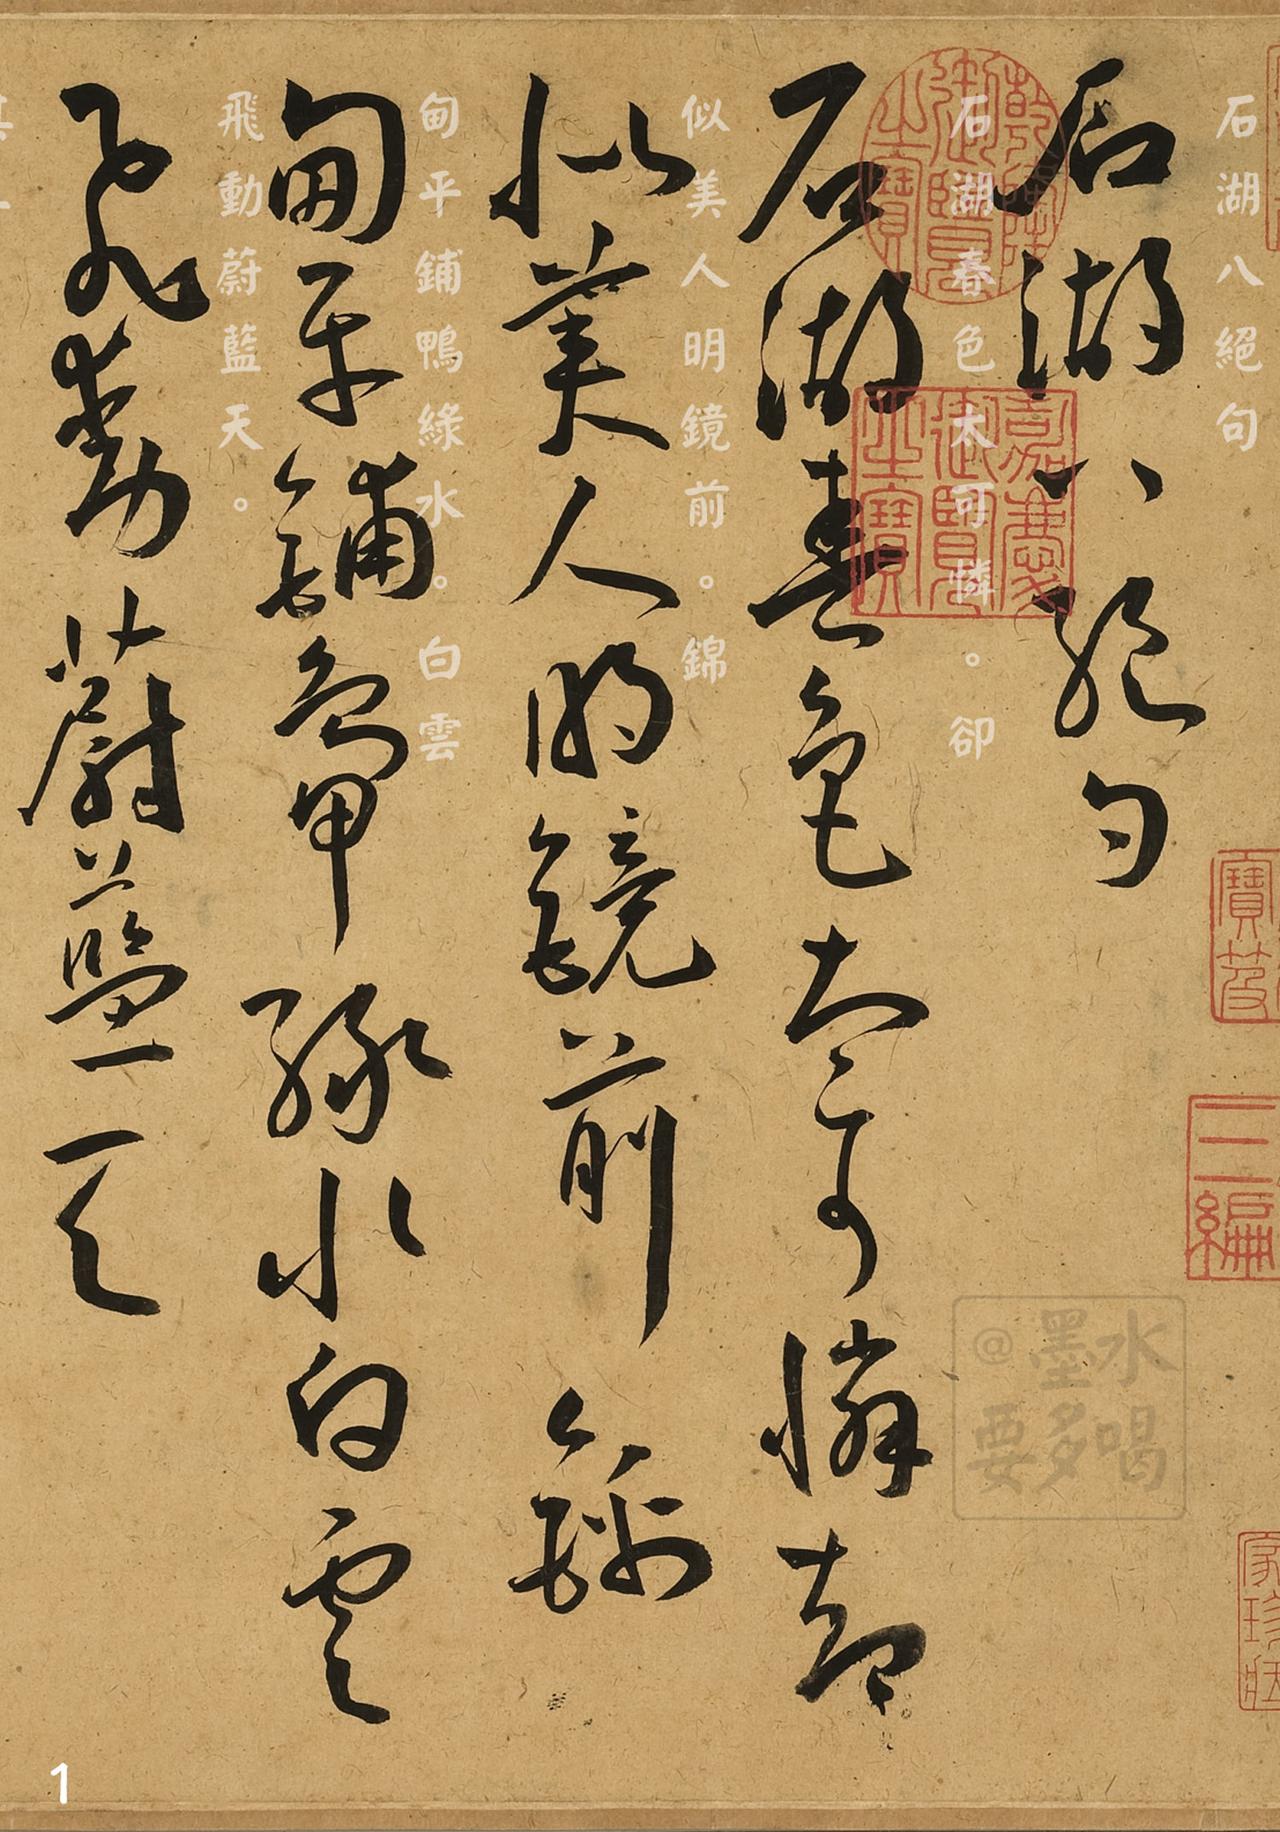 石湖八絕句
石湖春色太可憐却
似美人明鏡前錦
甸平鋪鴨緑水白雲
飛動蔚藍天
石湖八絕句
石湖春色太可憐。卻
似美人明鏡前。錦
甸平鋪鴨綠水。白雲
飛動蔚藍天。
乾隆御覽之寶
嘉慶御覽之寶
寶笈
三編
@墨水
要多喝
1